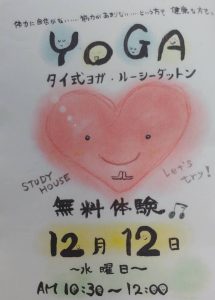 体力に自信がない……筋力があまりない……という方で 健康な方で、
YOGA
タイ式ヨガ・ルーシーダットン
STUDY
HOUSE
Let's
try!
無料体験
12月12日
～水曜日～
AM 10:30～12:00